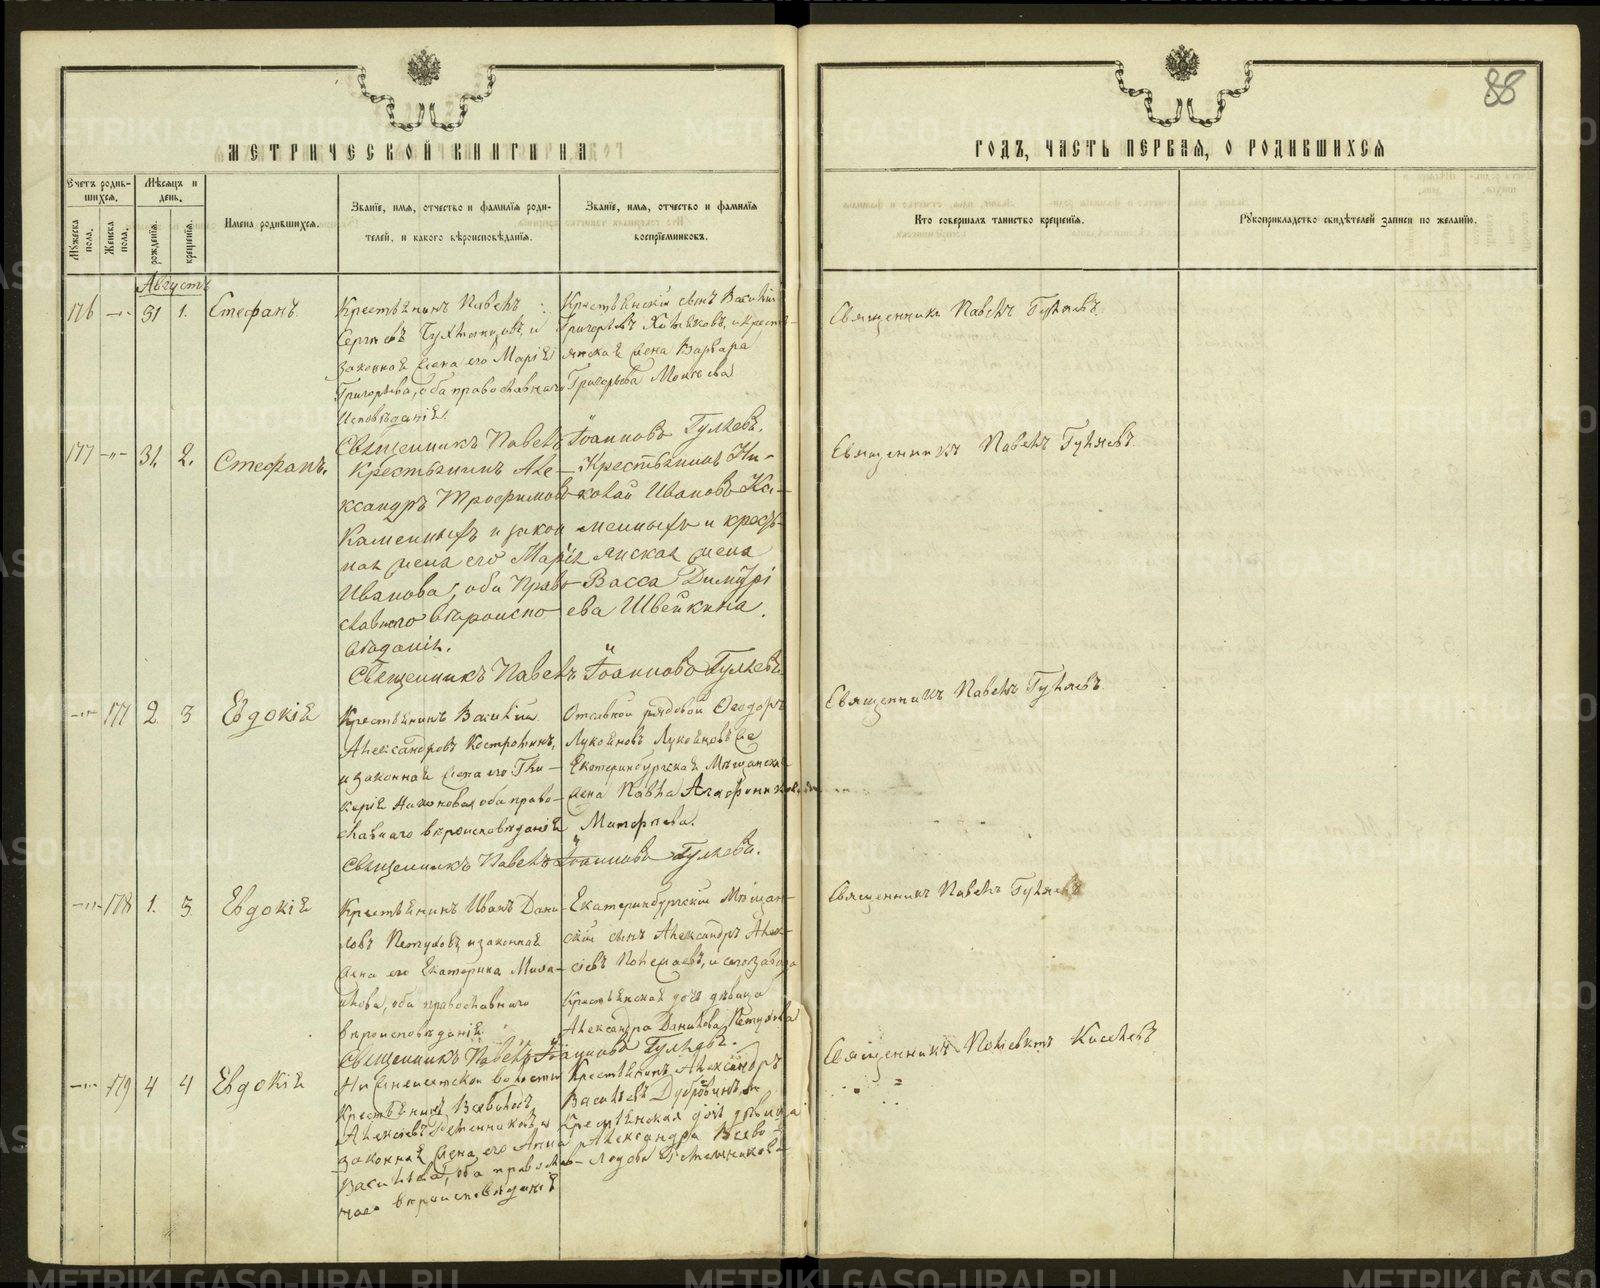 88
МЕТРИЧЕСКОЙ КНИГИ НА
ГОДЪ, ЧАСТЬ ПЕРВАЯ, О РОДИВШИХСЯ
Счетъ родив-
шихся.
Мѣсяцъ и
день.
Мужеска пола.
Женска пола.
рожденія.
крещенія.
Имена родившихся.
Званіе, имя, отчество и фамилія роди-
телей, и какого вѣроисповѣданія.
Званіе, имя, отчество и фамилія
воспріемниковъ.
Кто совершалъ таинство крещенія.
Рукоприкладство свидѣтелей записи по желанію.
Августъ
176 31 1. Стефанъ.
Крестьянинъ Павелъ
Сергѣевъ и
законная жена его Марія
Григорьева, оба православнаго
исповѣданія.
Крестьянскій сынъ Василій
Григорьевъ и крестъ-
янская жена Варвара
Григорьева
Священникъ Павелъ Гуляевъ.
Священникъ Павелъ Іоанновъ Гуляевъ.
177 31. 2. Стефанъ.
Крестьянинъ Але-
ксандръ Трофимовъ
Каменныхъ и закон
ная жена его Марія
Иванова, оба Право-
славнаго вѣроиспо-
вѣданія.
Крестьянинъ Ни-
колай Ивановъ Ка-
менныхъ и кресть-
янская жена
Васса Димитрі
ева Швейкина.
Священникъ Павелъ Гуляевъ
Священникъ Павелъ Іоанновъ Гуляевъ
177 2 3 Евдокія
Крестьянинъ Василій
Александровъ Костроминъ,
и законная жена его Гли-
керія оба право-
славнаго вѣроисповѣданія
Отставной рядовой Ѳеодоръ
Лукояновъ Лукояновъ
Екатеринбургская Мѣщанская
жена Павла
Священникъ Павелъ Гуляевъ.
Священникъ Павелъ Іоанновъ Гуляевъ.
178 1. 3 Евдокія
Крестьянинъ Иванъ Дани-
ловъ Пѣтуховъ, и законная
жена его Екатерина
оба православнаго
вѣроисповѣданія.
Екатеринбургскій Мѣщан-
скій сынъ Александръ Алек-
сіевъ и сего завода
крестьянская дочь дѣвица
Александра Данилова Пѣтухова
Священникъ Павелъ Гуляевъ
Священникъ Павелъ Іоанновъ Гуляевъ.
179 4 4 Евдокія
волости
Крестьянинъ Всеволодъ
Алексіевъ и
законная жена его Анна
Васильева, оба православ-
наго вѣроисповѣданія
Крестьянинъ Александръ
Васильевъ Дубровинъ, и
Крестьянская дочь дѣвица
Александра Всево-
лодова
Священникъ Киселевъ